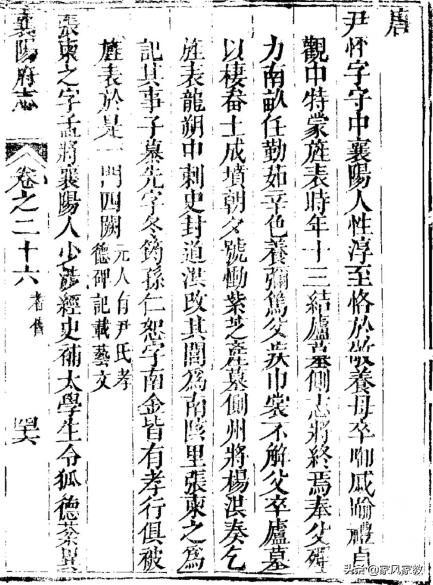 唐
尹怀字守中襄陽人性淳至恪於敬養母卒哀戚踰禮貞
觀中特蒙旌表時年十三結廬墓側志將終焉奉父殫
力南畝任勤茹辛色養彌篤父疾巾裳不解父卒廬墓
以棲畚土成墳朝夕號慟紫芝產墓側州將楊洪奏乞
旌表龍朔中刺史封道洪改其閭爲南陔里張柬之爲
記其事子慕先字冬筠孫仁恕字南金皆有孝行俱被
旌表於是一門四闕
元人有尹氏孝
德碑記載藝文
張柬之字孟將襄陽人少涉經史補太學生令狐德棻異
襄陽府志
卷之二十六
耆舊
頭条 @家风家教